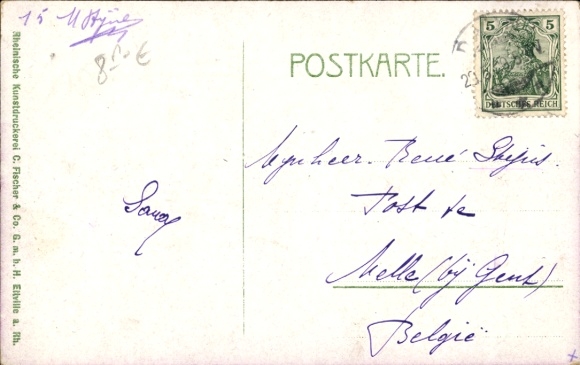 15
8
POSTKARTE.
5 5
DEUTSCHES REICH
Mynheer René
Post te
Melle (bij Gent)
België
Rheinische Kunstdruckerei C. Fischer & Co. G. m. b. H. Eltville a. Rh.